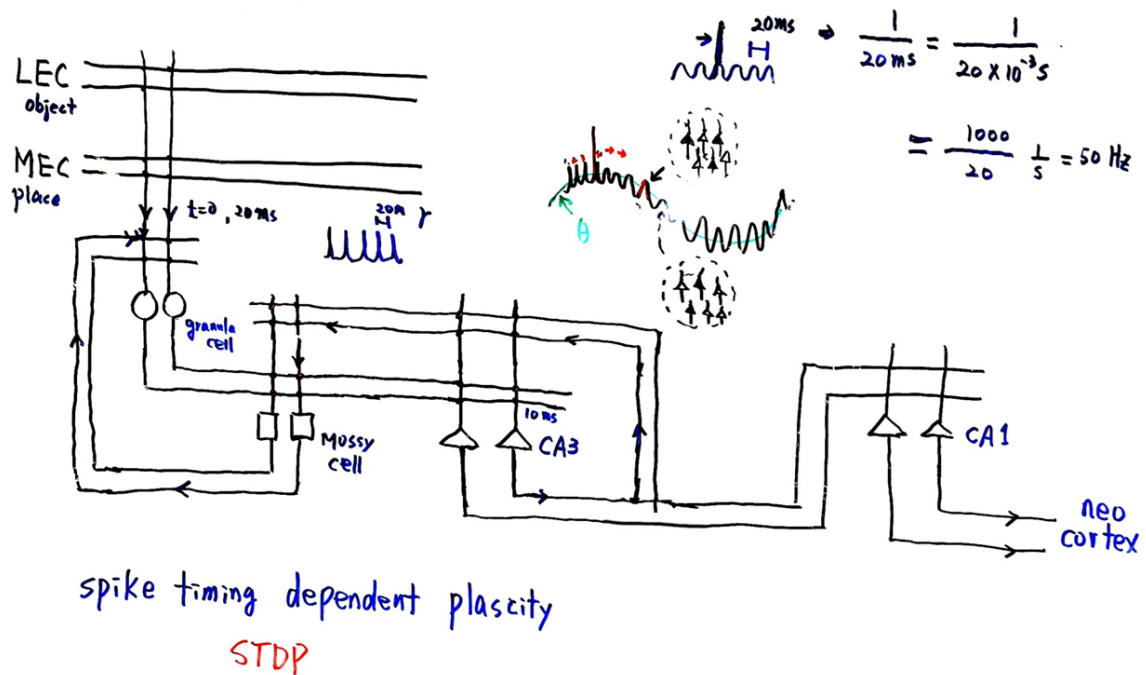 LEC
object
MEC
place
t=0, 20ms
20m γ
20ms → 1/20ms = 1/20×10⁻³s
= 1000/20 1/s = 50 Hz
θ
granula
cell
Mossy
cell
10ms
CA3
CA1
neo
cortex
spike timing dependent plascity
STDP